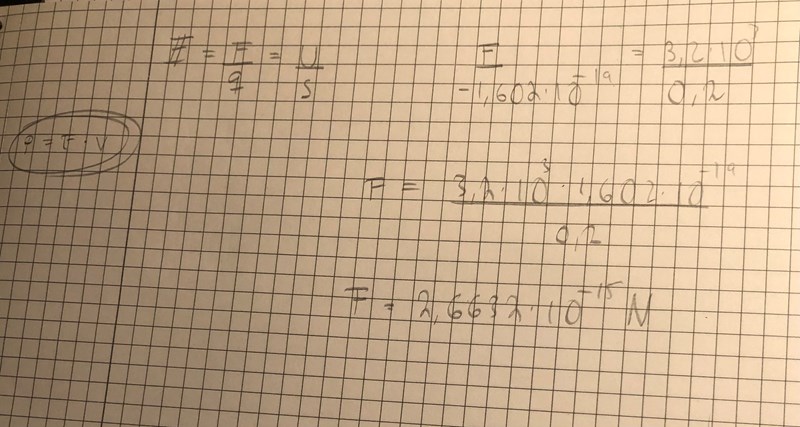 E = F/q = U/s
F/-1,602·10^-19 = 3,2·10^3/0,2
P = F·V
F = 3,2·10^3·1,602·10^-19/0,2
F = 2,6632·10^-15 N